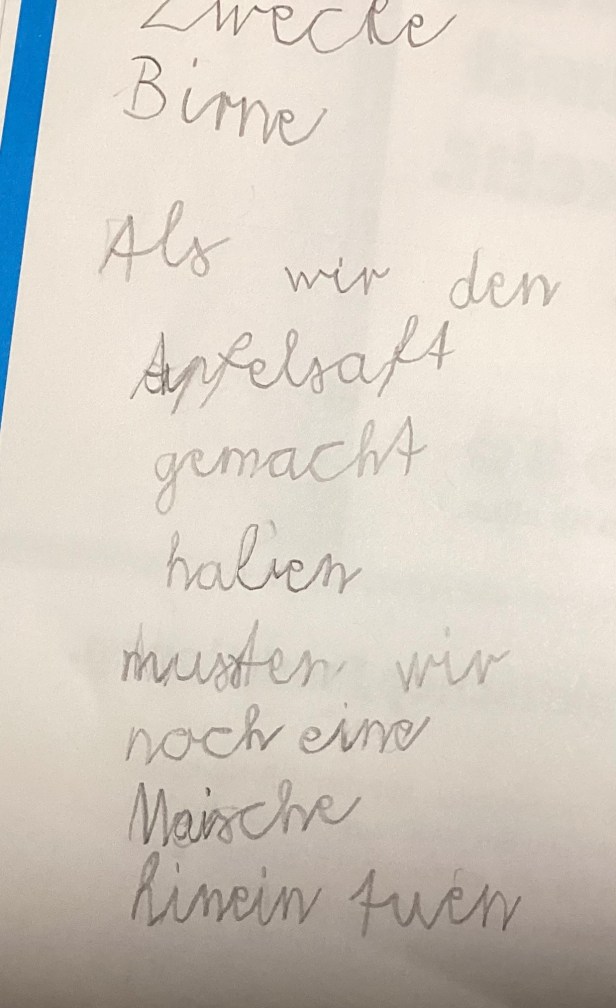 Zwecke
Birne
Als wir den
Apfelsaft
gemacht
haben
mussten wir
noch eine
Maische
hinein tuen